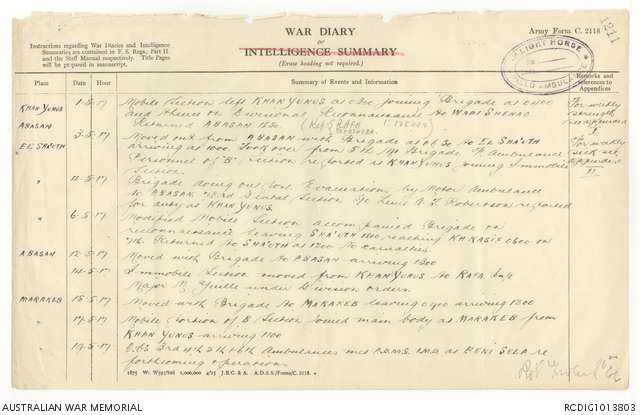 WAR DIARY
or
INTELLIGENCE SUMMARY
(Erase heading not required.)
Army Form C. 2118
1211
Instructions regarding War Diaries and Intelligence
Summaries are contained in F. S. Regs., Part II
and the Staff Manual respectively. Title Pages
will be prepared in manuscript.
LIGHT HORSE
FIELD AMBULANCE
Place Date Hour Summary of Events and Information Remarks and references to Appendices
KHAN YUNUS 1.5.17 Mobile Section left KHAN YUNUS at joining Brigade at 0400
and thence on Divisional Reconnaissance to WADI SHENAG
ABASAN Returned ABASAN 1530.
EL SHAUTH 3.5.17 Moved out from ABASAN with Brigade at 0630 to EL SHAUTH
arriving at 1000. Took over from 5th Brigade Fd Ambulance
Personnel of "B" section reported at KHAN YUNUS joining Immobile
Section
" Brigade doing out post. Evacuation by Motor Ambulance
to ABASAN. Dental Section Robertson reported
for duty at KHAN YUNUS.
" 6.5.17 Modified Mobile Section accompanied Brigade on
reconnaissance leaving SHAUTH reaching KH KASIF 0600 on
7th. Returned to SHAUTH at 1200 no casualties.
ABASAN Moved with Brigade to ABASAN arriving 1300
" Immobile Section moved from KHAN YUNUS to RAFA
Major Yuille under Division orders.
MARAKEB 15.5.17 Moved with Brigade to MARAKEB leaving arriving 1300
" 17.5.17 Mobile portion of B Section joined main body at MARAKEB from
KHAN YUNUS arriving 1100
19.5.17 O.C's 3rd 4th 5th & 6th Ambulances met A.D.M.S. I.M.D at BENI SELA re
forthcoming operations.
For weekly
strength
see appendix
I
For weekly
sick
see
appendix
II
1875 Wt. W593/826 1,000,000 4/15 J.B.C. & A. A.D.S.S./Forms/C. 2118.
AUSTRALIAN WAR MEMORIAL
RCDIG1013803